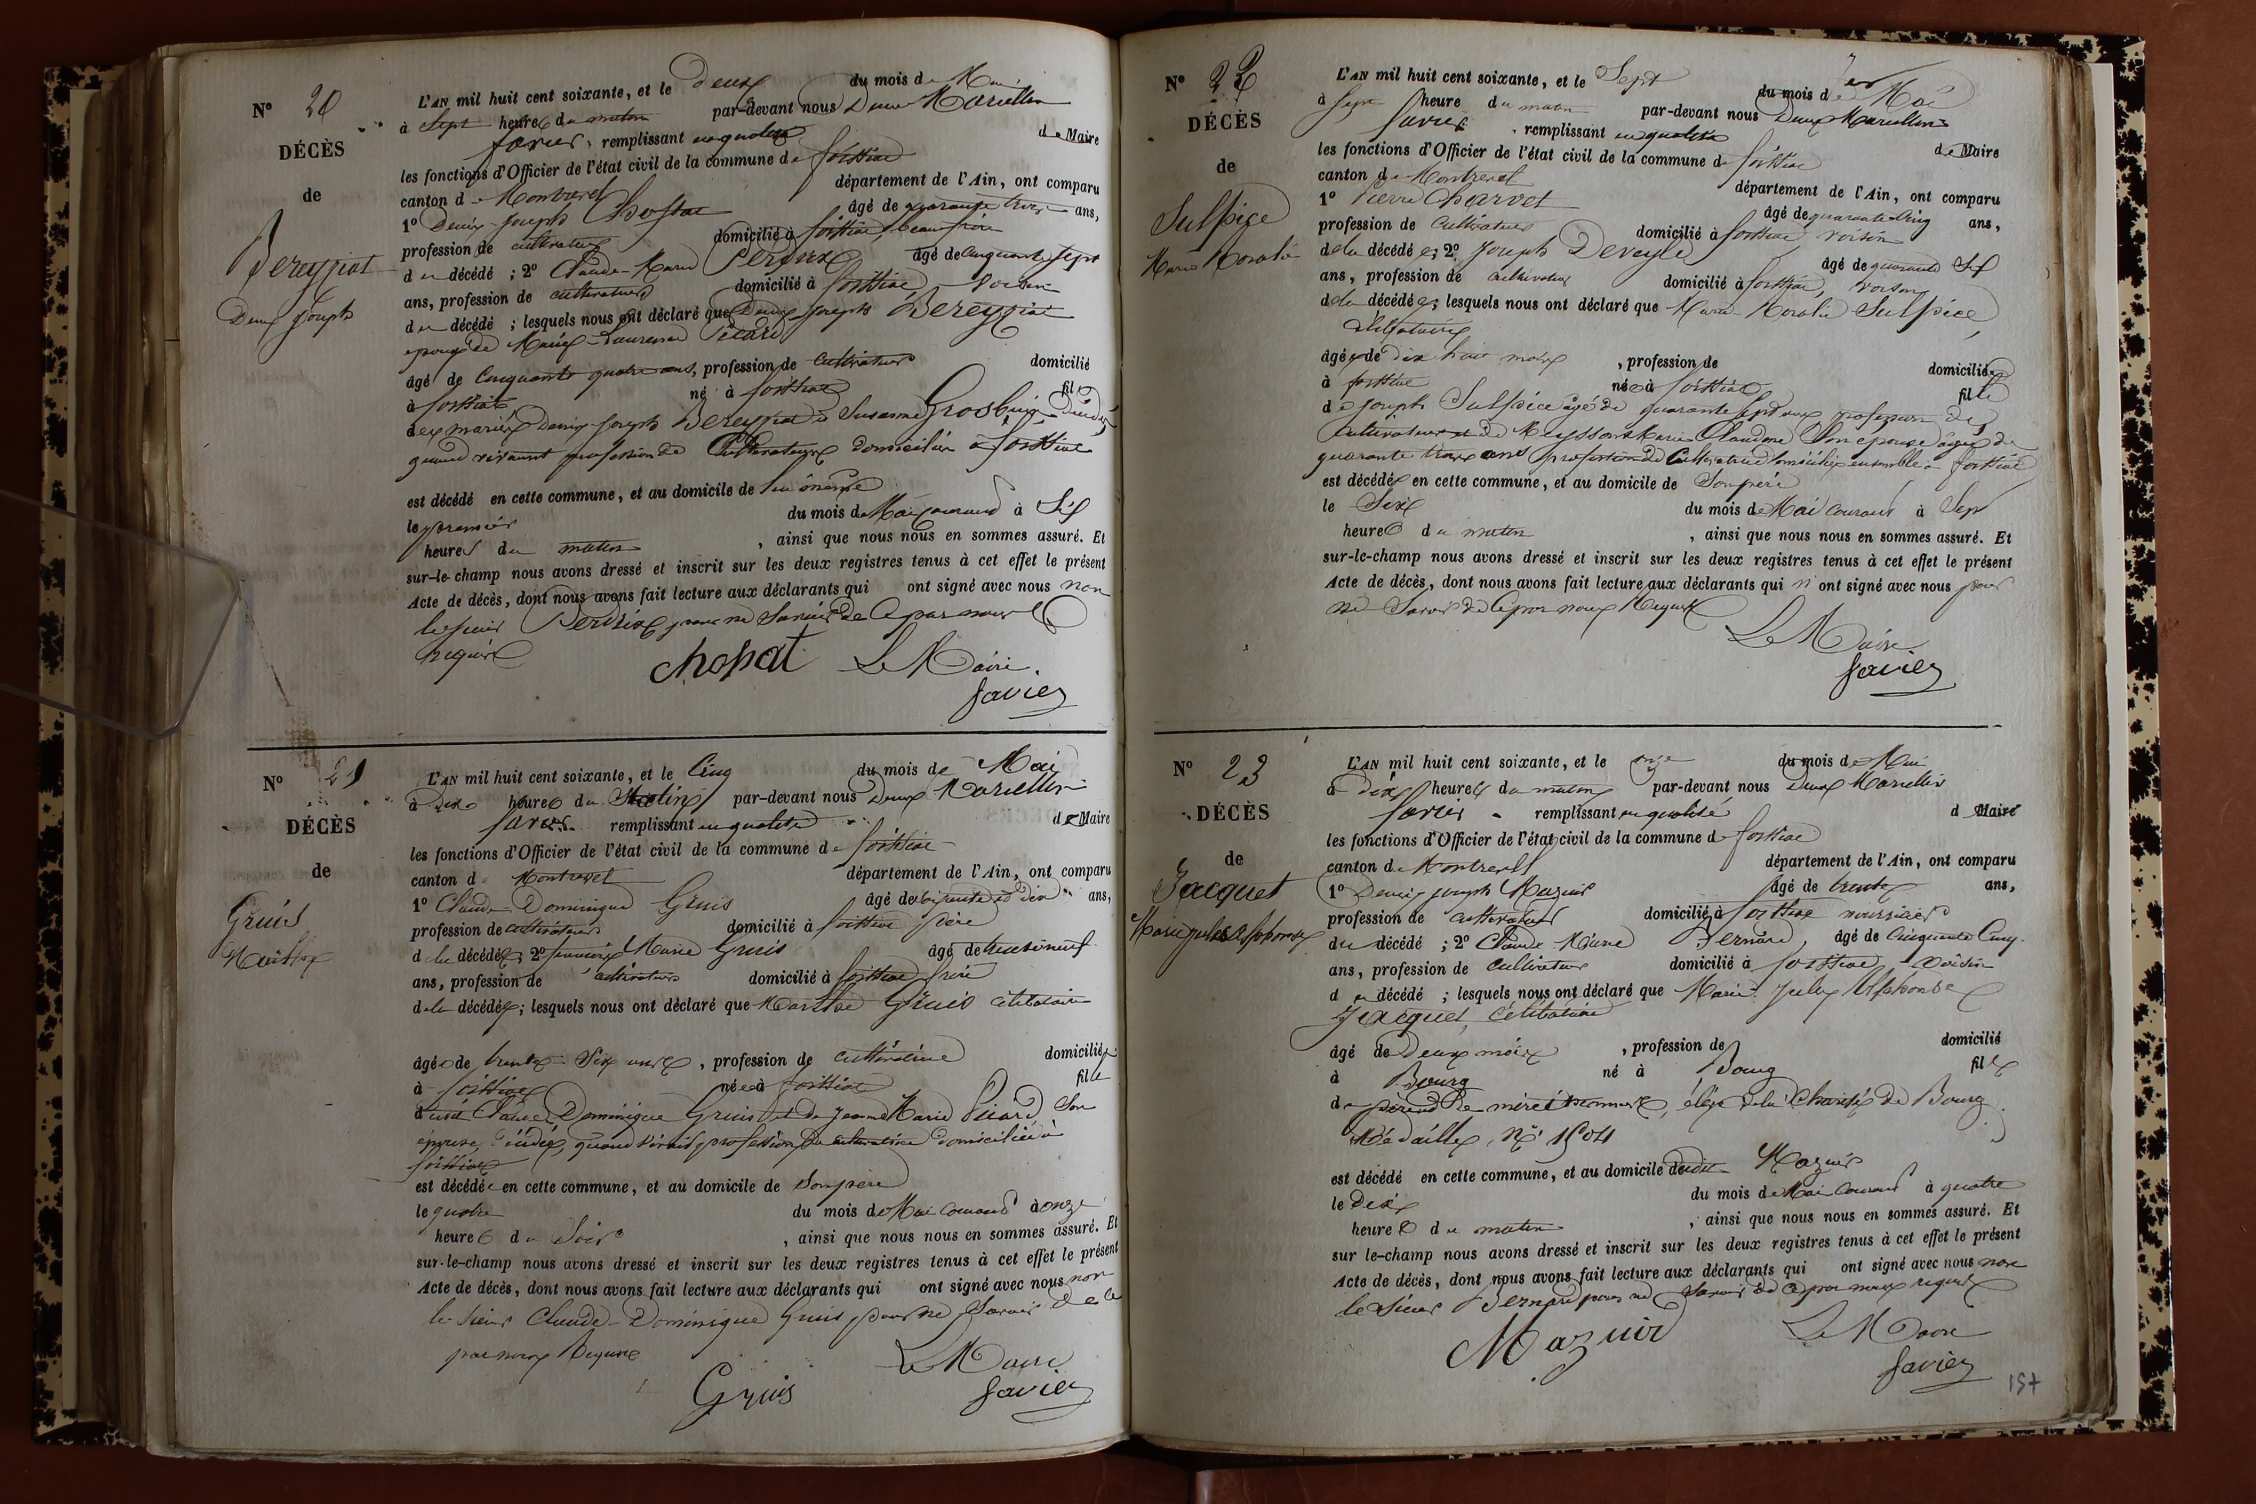 N° 20
DÉCÈS
de
Bereyziat
Denis Joseph
L'AN mil huit cent soixante, et le deux du mois de Mai
à Sept heures du matin par-devant nous Marcellin
favier, remplissant en qualité de Maire
les fonctions d'Officier de l'état civil de la commune de foissiat
canton de Montrevel département de l'Ain, ont comparu
1° Denis Joseph Chossat âgé de quarante trois ans,
profession de cultivateur domicilié à foissiat, beau frère
du décédé ; 2° Claude Marie Perdrix âgé de Cinquante Sept
ans, profession de cultivateur domicilié à foissiat voisin
du décédé ; lesquels nous ont déclaré que Denis Joseph Bereyziat
époux de Marie Laurence Picard
âgé de Cinquante quatre ans, profession de Cultivateur domicilié
à foissiat né à foissiat fils
des mariés Denis Joseph Bereyziat et Susanne Grosbuis décédés,
quand vivaient profession de Cultivateurs domiciliés à foissiat
est décédé en cette commune, et au domicile de lui même
le premier du mois de Mai courant à Six
heures du matin, ainsi que nous nous en sommes assuré. Et
sur-le-champ nous avons dressé et inscrit sur les deux registres tenus à cet effet le présent
Acte de décès, dont nous avons fait lecture aux déclarants qui ont signé avec nous non
le sieur Perdrix pour ne savoir de ce par nous
requis
Chossat Le Maire
favier
N° 21
DÉCÈS
de
Gruis
Marthe
L'AN mil huit cent soixante, et le Cinq du mois de Mai
à Dix heures du Matin par-devant nous Marcellin
favier remplissant en qualité de Maire
les fonctions d'Officier de l'état civil de la commune de foissiat
canton d Montrevel département de l'Ain, ont comparu
1° Claude Dominique Gruis âgé de soixante et dix ans,
profession de cultivateur domicilié à foissiat père
de la décédée; 2° Marie Gruis âgé de trente neuf
ans, profession de cultivateur domicilié à foissiat frère
de la décédée; lesquels nous ont déclaré que Marthe Gruis célibataire
âgée de trente Six ans, profession de cultivatrice domiciliée
à foissiat née à foissiat fille
dudit Claude Dominique Gruis et de Jeanne Marie Picard Son
épouse, décédée, quand vivait profession de cultivatrice domiciliée à
foissiat
est décédée en cette commune, et au domicile de Son père
le quatre du mois de Mai courant à onze
heures du Soir, ainsi que nous nous en sommes assuré. Et
sur-le-champ nous avons dressé et inscrit sur les deux registres tenus à cet effet le présent
Acte de décès, dont nous avons fait lecture aux déclarants qui ont signé avec nous non
le sieur Claude Dominique Gruis pour ne savoir de ce
par nous Requis
Gruis Le Maire
favier
N° 22
DÉCÈS
de
Sulpice
Marie
L'AN mil huit cent soixante, et le Sept du mois de Mai
à Sept heure du matin par-devant nous Marcellin
favier, remplissant en qualité de Maire
les fonctions d'Officier de l'état civil de la commune de foissiat
canton de Montrevel département de l'Ain, ont comparu
1° Pierre Charvet âgé de quarante Cinq ans,
profession de Cultivateur domicilié à foissiat voisin
de la décédée; 2° Joseph Deveyle âgé de quarante Six
ans, profession de cultivateur domicilié à foissiat, voisin
de la décédée; lesquels nous ont déclaré que Marie Sulpice,
célibataire
âgée de dix huit mois, profession de domiciliée
à foissiat née à foissiat fille
de Joseph Sulpice âgé de quarante Sept ans profession de
Cultivateur et de Meyssont Marie Claudine Son épouse âgée de
quarante trois ans profession de Cultivatrice domiciliés ensemble à foissiat
est décédée en cette commune, et au domicile de Son père
le Six du mois de Mai courant à Sept
heures du matin, ainsi que nous nous en sommes assuré. Et
sur-le-champ nous avons dressé et inscrit sur les deux registres tenus à cet effet le présent
Acte de décès, dont nous avons fait lecture aux déclarants qui n'ont signé avec nous pour
ne Savoir de ce par nous Requis
Le Maire
favier
N° 23
DÉCÈS
de
Jacquet
Marie Jules Alphonse
L'AN mil huit cent soixante, et le onze du mois de Mai
à dix heures du matin par-devant nous Marcellin
favier remplissant en qualité d Maire
les fonctions d'Officier de l'état civil de la commune de foissiat
canton de Montrevel département de l'Ain, ont comparu
1° Denis Joseph Mazuir âgé de trente ans,
profession de cultivateur domicilié à foissiat nourricier
du décédé ; 2° Claude Marie Bernard, âgé de Cinquante Cinq
ans, profession de cultivateur domicilié à foissiat, voisin
du décédé ; lesquels nous ont déclaré que Marie Jules Alphonse
Jacquet, célibataire
âgé de Deux mois, profession de domicilié
à Bourg né à Bourg fils
de père et de mère inconnus, élève de la Charité de Bourg
Médaille N° 1504
est décédé en cette commune, et au domicile dudit Mazuir
le Dix du mois de Mai courant à quatre
heures du matin, ainsi que nous nous en sommes assuré. Et
sur-le-champ nous avons dressé et inscrit sur les deux registres tenus à cet effet le présent
Acte de décès, dont nous avons fait lecture aux déclarants qui ont signé avec nous non
le sieur Bernard pour ne savoir de ce par nous requis
Mazuir Le Maire
favier
157